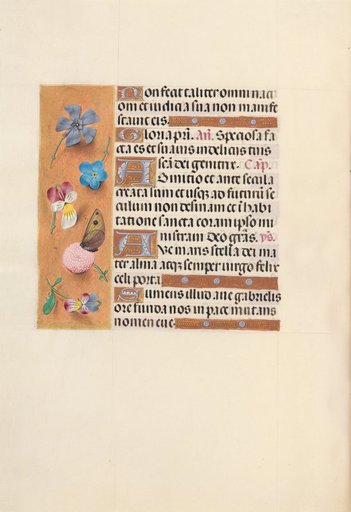 Non fecit taliter omni nati
oni et iudicia sua non manife
stauit eis.
Gloria pri. An. Speciosa fa
cta es et suauis in delicijs tuis
sca dei genitrix. Cap.
Ab initio et ante secula
creata sum et usq; ad futurum se
culum non desinam et in habi
tatione sancta coram ipso mi
nistraui. Deo gras. ps.
Aue maris stella dei ma
ter alma atq; semper uirgo felix
celi porta
Sumens illud aue gabrielis
ore funda nos in pace mutans
nomen eue